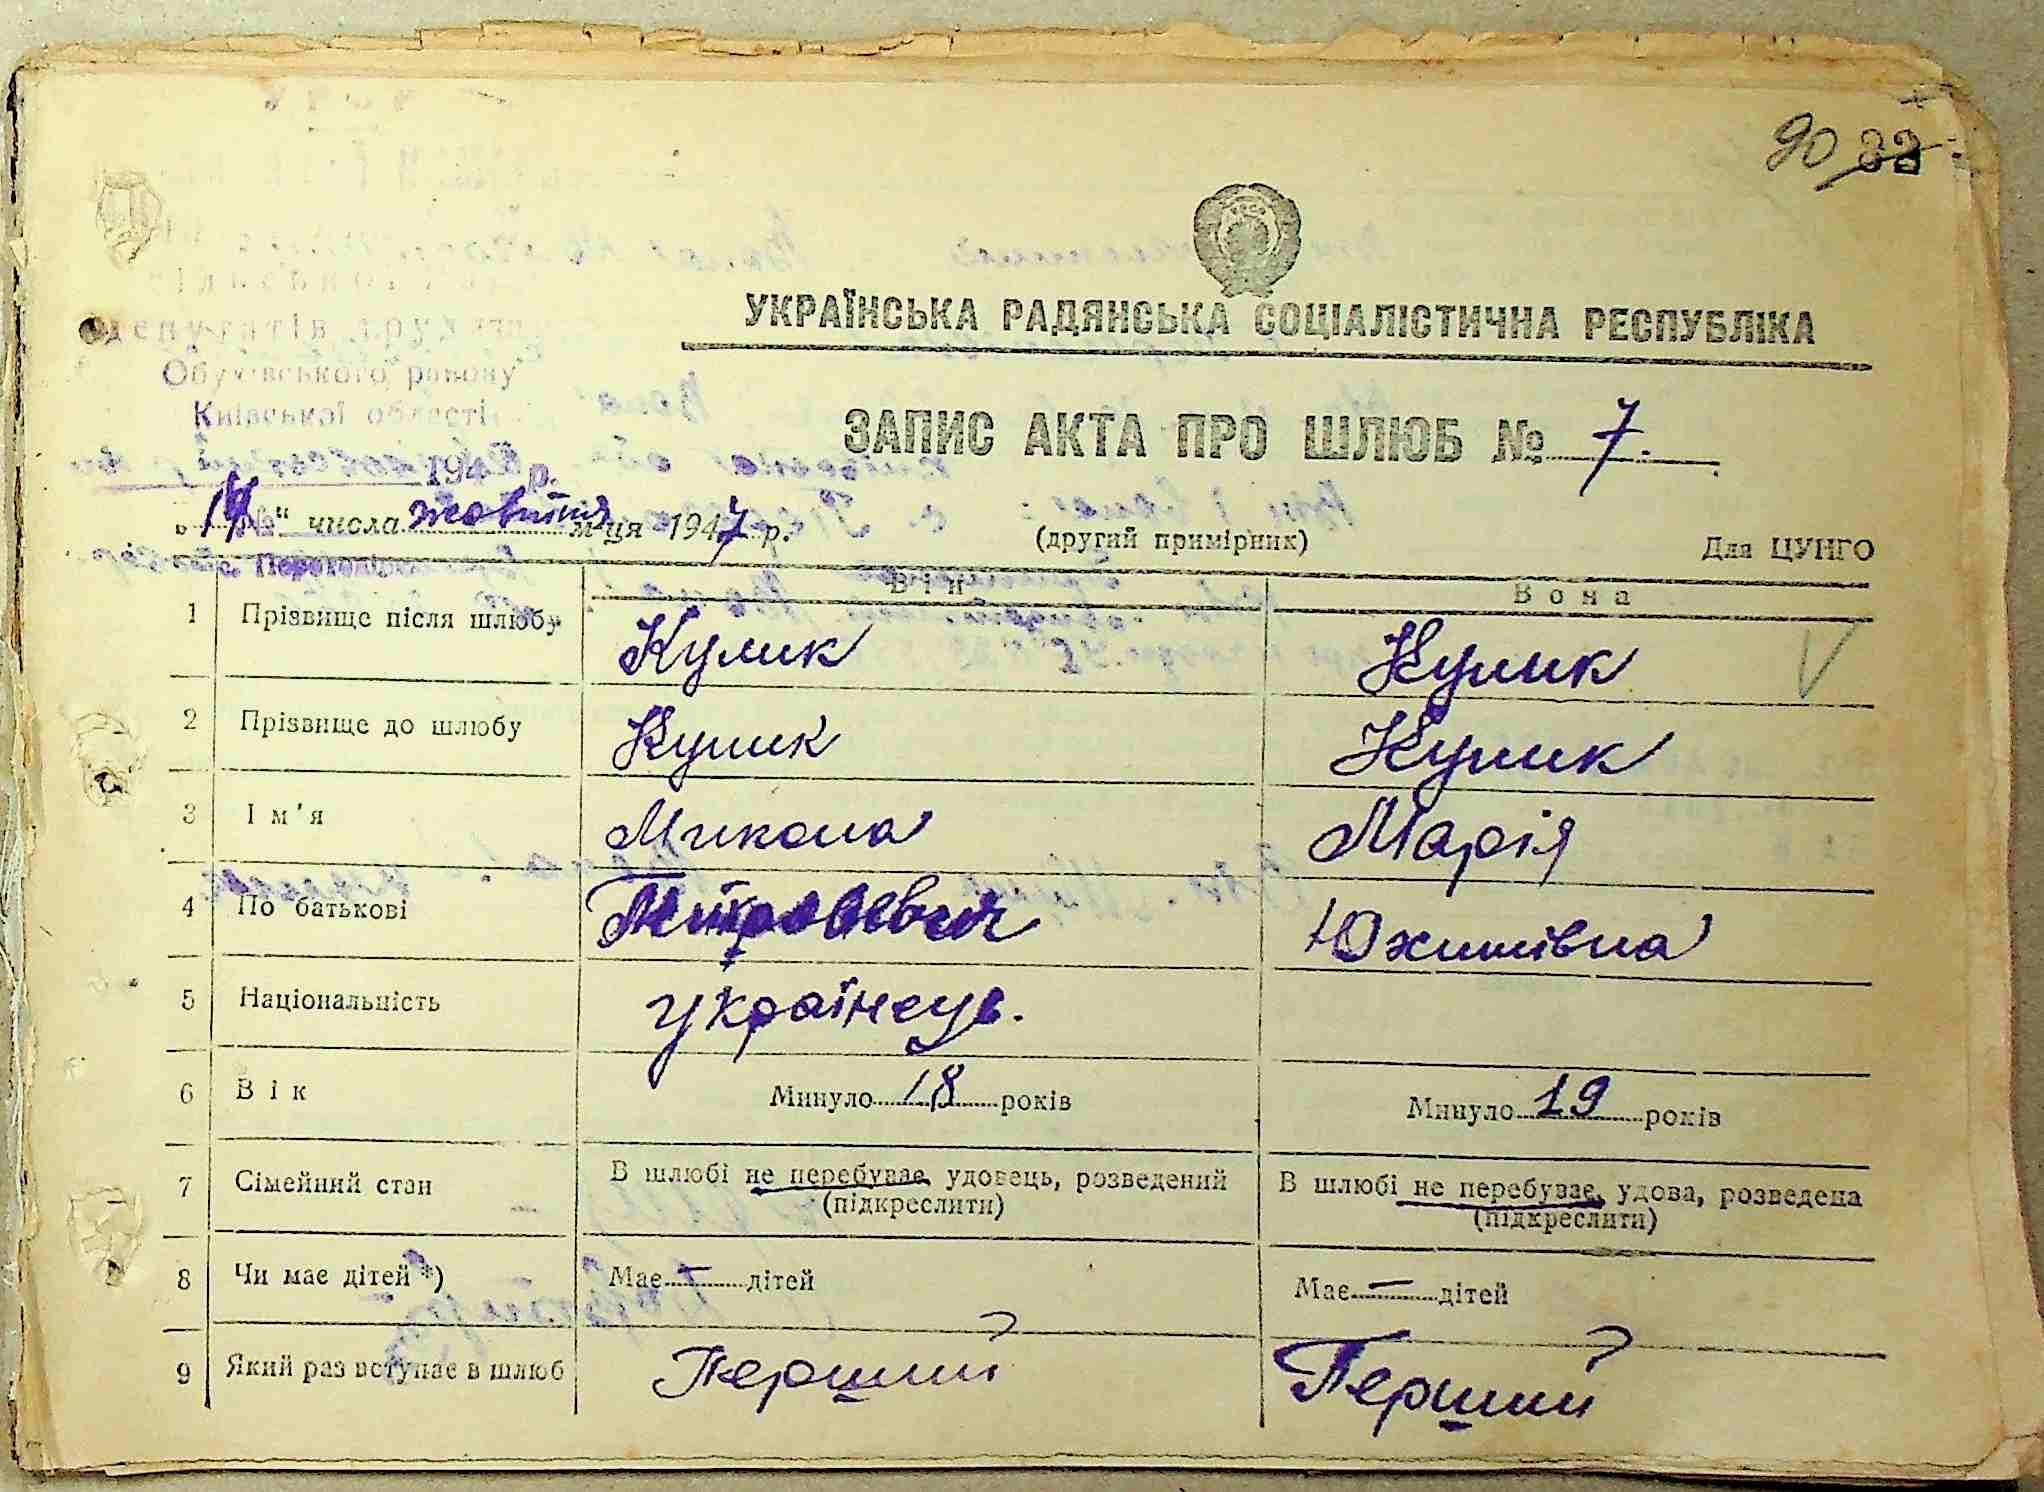 90 33
УКРАЇНСЬКА РАДЯНСЬКА СОЦІАЛІСТИЧНА РЕСПУБЛІКА
депутатів трудящ
Обухівського району
Київської області
194 р.
ЗАПИС АКТА ПРО ШЛЮБ № 7.
„14“ числа жовтня м-ця 1947 р.
(другий примірник)
Для ЦУНГО
Він Вона
1 Прізвище після шлюбу Кулик Кулик
2 Прізвище до шлюбу Кулик Кулик
3 Ім'я Микола Марія
4 По батькові Петрович Юхимівна
5 Національність українець.
6 Вік Минуло 18 років Минуло 19 років
7 Сімейний стан В шлюбі не перебуває, удовець, розведений В шлюбі не перебуває, удова, розведена
(підкреслити) (підкреслити)
8 Чи має дітей *) Має — дітей Має — дітей
9 Який раз вступає в шлюб Перший Перший